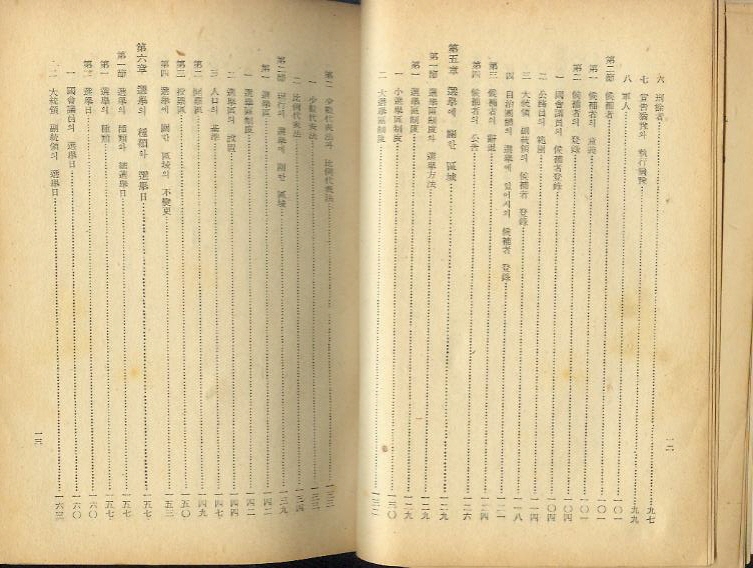 六 刑餘者 九七
七 宣告猶豫와 執行猶豫 九九
八 軍人 一〇一
第二節 候補者 一〇一
第一 候補者의 意義 一〇一
第二 候補者의 登錄 一〇四
一 國會議員의 候補者登錄 一〇四
二 公務員의 範圍 一一四
三 大統領 副統領의 候補者 登錄 一一八
四 自治團體의 選擧에 있어서의 候補者 登錄 一二一
第三 候補者의 辭退 一二四
第四 候補者의 公告 一二六
第五章 選擧에 關한 區域 一二九
第一節 選擧區制度와 選擧方法 一二九
第一 選擧區制度 一二九
一 小選擧區制度 一三〇
二 大選擧區制度 一三一
一二
第二 少數代表法과 比例代表法 一三三
一 少數代表法 一三三
二 比例代表法 一三四
第二節 現行의 選擧에 關한 區域 一三九
第一 選擧區 一四二
一 選擧區制度 一四二
二 選擧區의 設置 一四四
三 人口의 基準 一四七
第二 開票區 一四九
第三 投票區 一五〇
第四 選擧에 關한 區域의 不變更 一五三
第六章 選擧의 種類와 選擧日 一五七
第一節 選擧의 種類와 總選擧日 一五七
第一 選擧의 種類 一五七
第二 選擧日 一六〇
一 國會議員의 選擧日 一六〇
二 大統領 副統領의 選擧日 一六三
一三